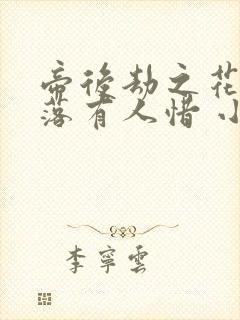 帝後劫之花
落有人惜 小
李寧雲